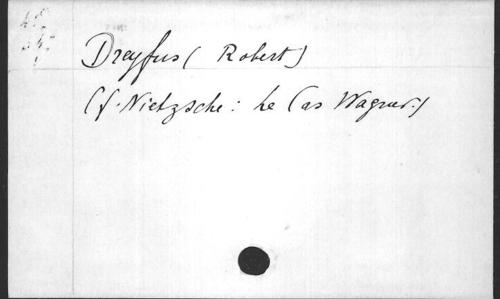 Dreyfus (Robert)
Cf. Nietzsche: Le Cas Wagner.)